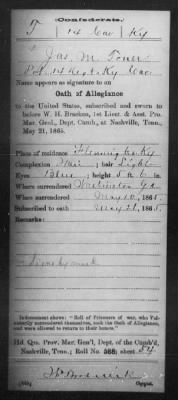 Confederate.
T | 14 Cav | Ky
Jas. M. Toner
Pvt. 14 Regt. Ky Cav.
Name appears as signature to an
Oath of Allegiance
to the United States, subscribed and sworn to
before W. H. Bracken, 1st Lieut. & Asst. Pro.
Mar. Genl., Dept. Cumb., at Nashville, Tenn.,
May 21, 1865.
Place of residence Flemming Co Ky
Complexion Fair ; hair Light
Eyes Blue ; height 5 ft. 6 in.
Where surrendered Washington Ga
When surrendered May 10, 1865.
Subscribed to oath May 21, 1865.
Remarks:
Indorsement shows: "Roll of Prisoners of war, who Vol-
untarily surrendered themselves, took the Oath of Allegiance,
and were allowed to return to their homes."
Hd. Qrs. Prov. Mar. Gen'l, Dept. of the Cumb'd,
Nashville, Tenn.; Roll No. 565; sheet 54
Copyist.